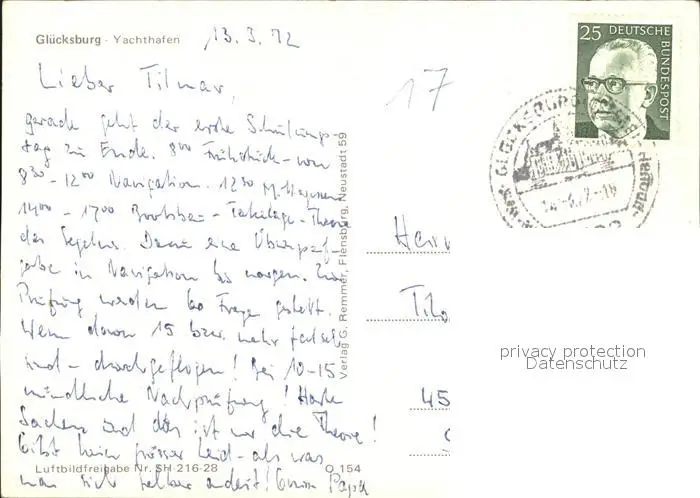 Glücksburg - Yachthafen
13.3.72
Lieber Tilmar,
gerade geht der erste Schulungs-
tag zu Ende. 8⁰⁰ Frühstück - von
8³⁰ - 12⁰⁰ Navigation. 12³⁰ M.-essen
14⁰⁰ - 17⁰⁰ Bootsbau - Takelage - Theorie
des Segelns. Dann eine Übungsauf-
gabe in Navigation bis morgen. Zur
Prüfung werden 60 Fragen gestellt.
Wenn davon 15 bzw. mehr falsch
sind - durchgeflogen! Bei 10-15
mündliche Nachprüfung! Harte
Sachen und das ist nur die Theorie!
Gibt kein grösser Leid - als was
man sich selber andeit! Gruss Papa
Luftbildfreigabe Nr. SH 216-28
O 154
Verlag G. Remmer, Flensburg, Neustadt 59
17
25 DEUTSCHE
BUNDESPOST
GLÜCKSBURG
Herr
Tilm
45
privacy protection
Datenschutz